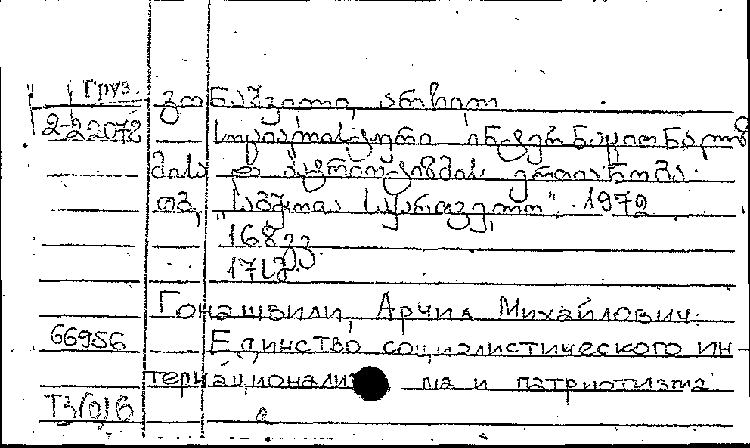 Груз.
გონაშვილი, არჩილ
2-22072
სოციალისტური ინტერნაციონალიზ
მისა და პატრიოტიზმის ერთიანობა.
თბ, "საბჭოთა საქართველო". 1972
168 გვ.
Гонашвили, Арчил Михайлович.
66956
Единство социалистического ин-
тернационализма и патриотизма
Т3(0)6